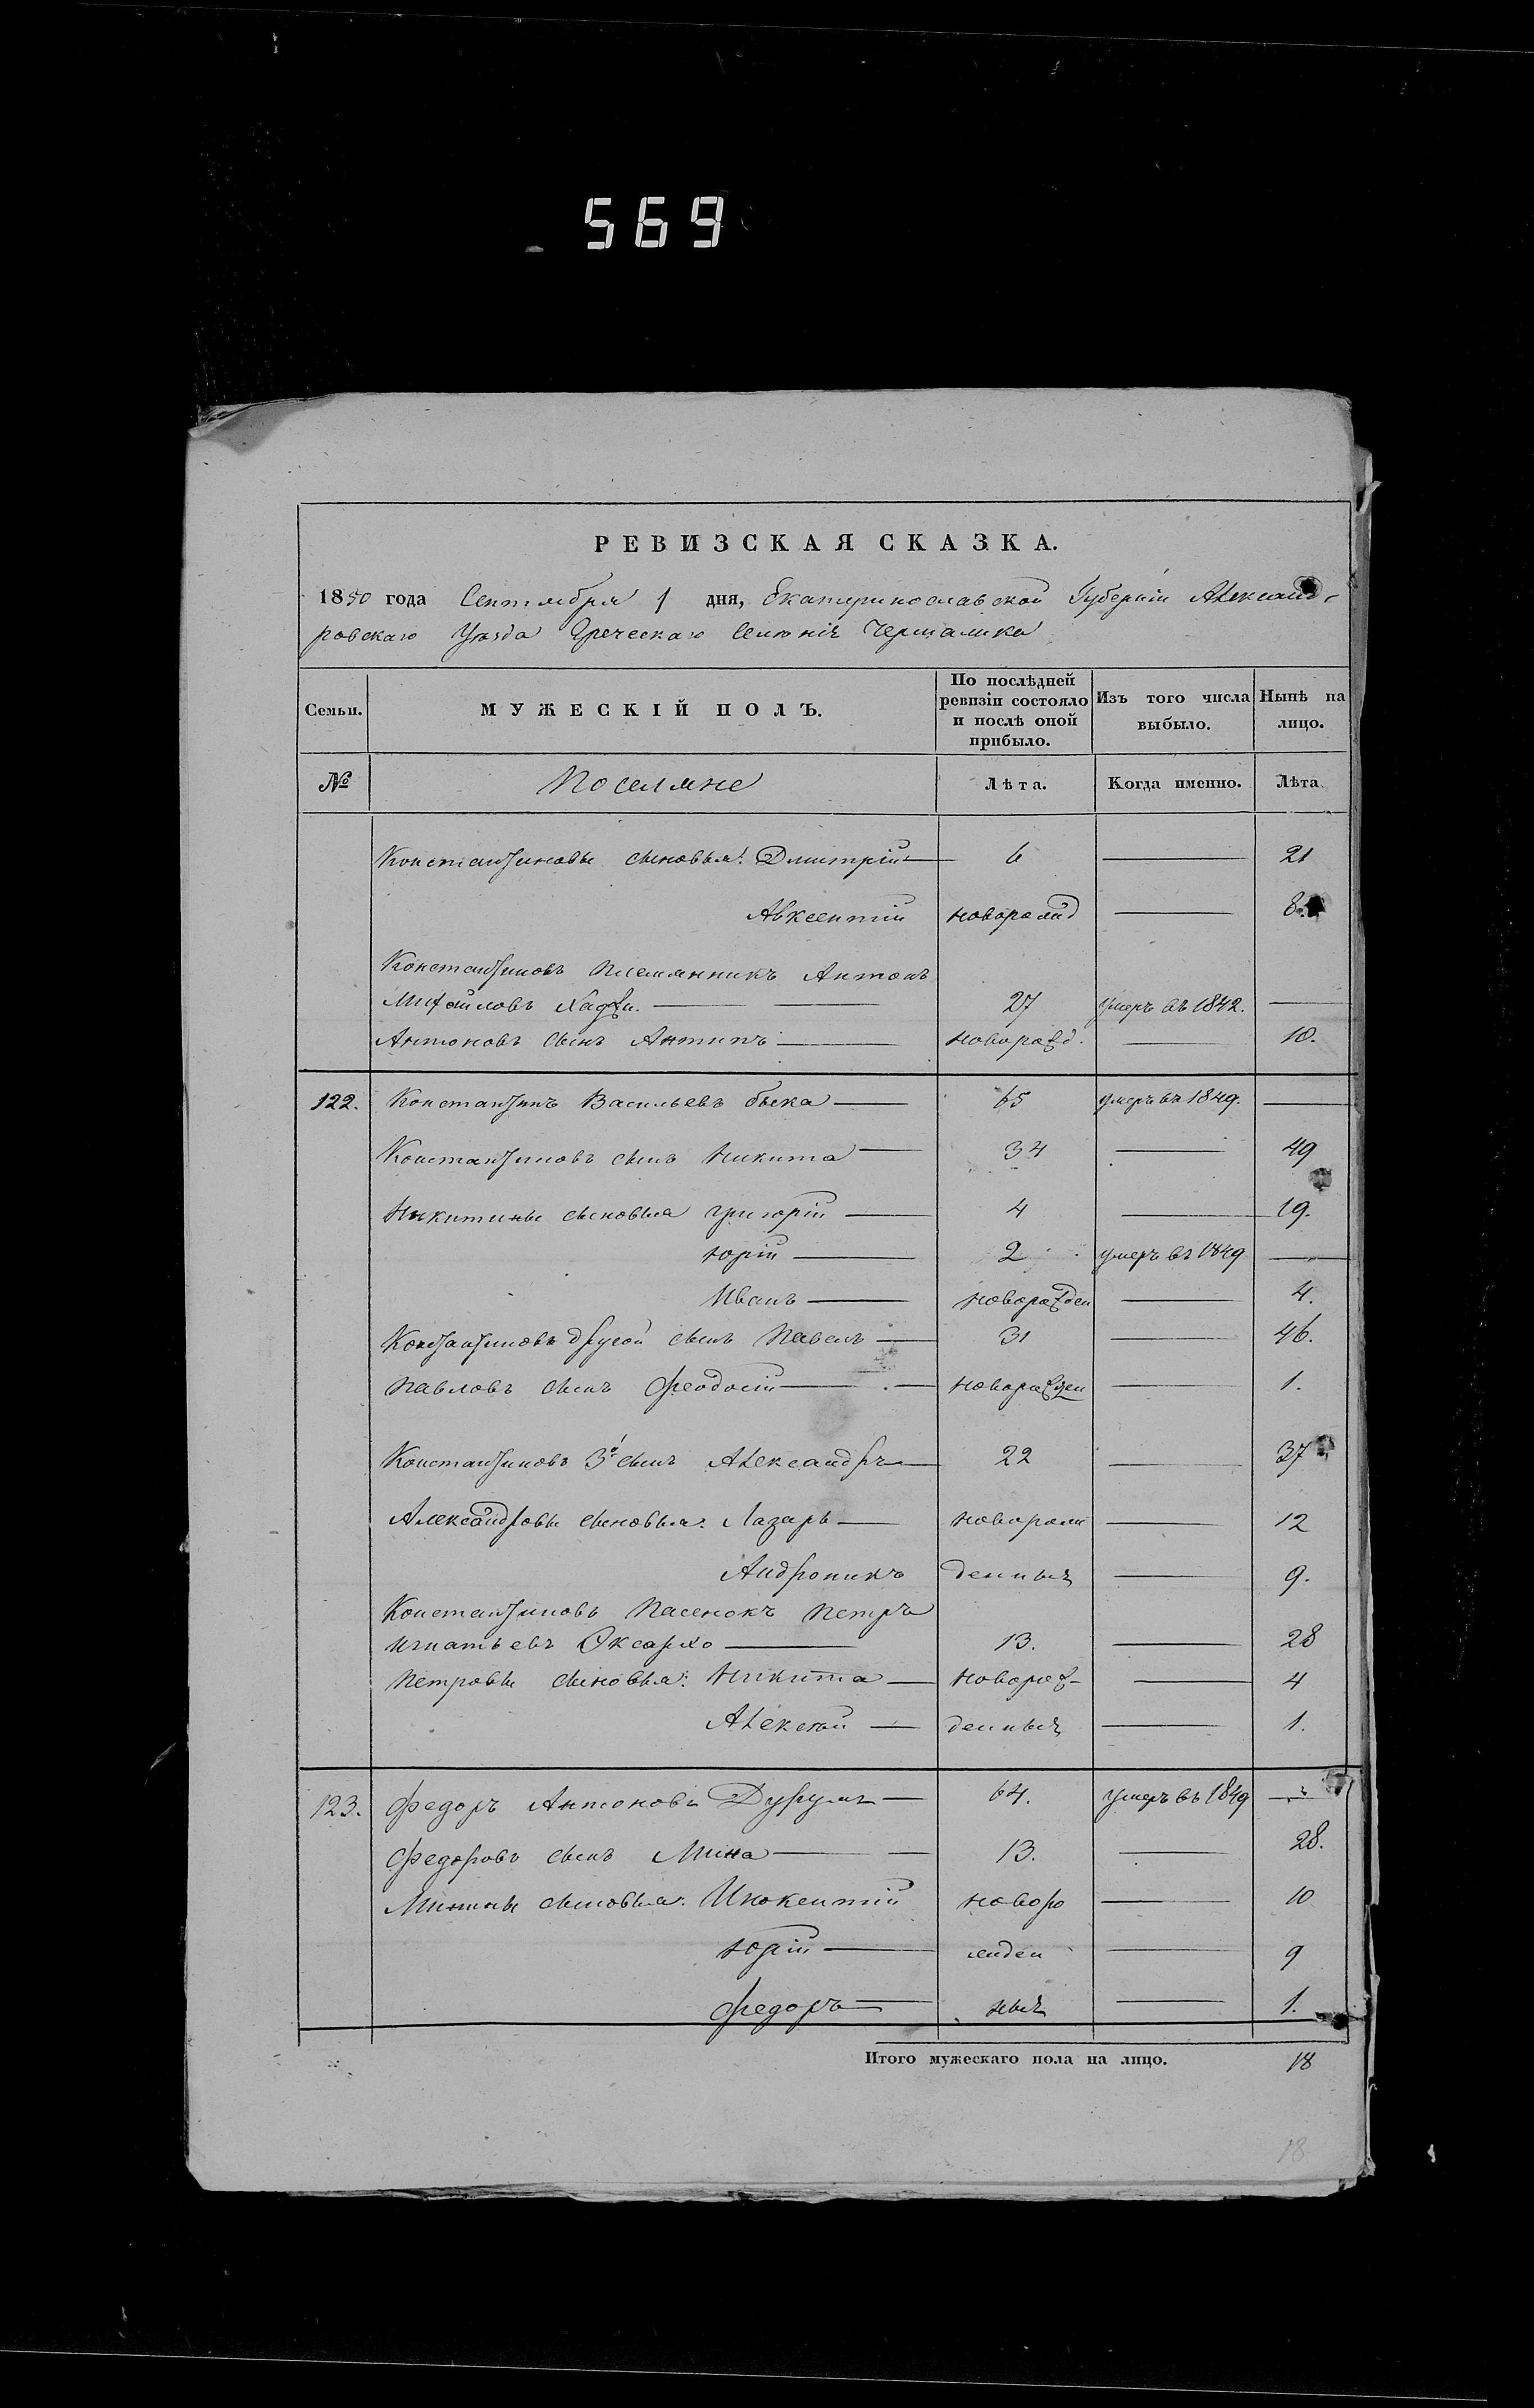 569
РЕВИЗСКАЯ СКАЗКА.
1850 года Сентября 1 дня, Екатеринославской Губерніи Александ-
ровскаго Уѣзда Греческаго Селенія Чермалика
Семьи. МУЖЕСКІЙ ПОЛЪ. По послѣдней ревизіи состояло и послѣ оной прибыло. Изъ того числа выбыло. Нынѣ на лицо.
№ Поселяне Лѣта. Когда именно. Лѣта.
Константиновы сыновья: Дмитрій — 6 — 21
Авксентій новорожд — 8.
Константиновъ племянникъ Антонъ
Михайловъ Хаджи. — — 27 умеръ въ 1842. —
Антоновъ сынъ Антипъ — новорожд. — 10.
122. Константинъ Васильевъ Быка — 65 умеръ въ 1849. —
Константиновъ сынъ Никита — 34 — 49
Никитины сыновья Григорій — 4 — 19.
Юрій — 2 умеръ въ 1849 —
Иванъ — новорожден — 4.
Константиновъ другой сынъ Павелъ — 31 — 46.
Павловъ сынъ Феодосій — новорожден — 1.
Константиновъ 3й сынъ Александръ — 22 — 37
Александровы сыновья: Лазарь — новорож — 12
Андроникъ денныя — 9.
Константиновъ пасенокъ Петръ
Игнатьевъ Оксархо — 13. — 28
Петровы сыновья: Никита — новорож- — 4
Алексѣй — денныя — 1.
123. Федоръ Антоновъ Дурумъ — 64. умеръ въ 1849 —
Федоровъ сынъ Мина — — 13. — 28.
Минины сыновья: Инокентій новоро — 10
Юрій — жден — 9
Федоръ — ныя — 1.
Итого мужескаго пола на лицо. 18
18